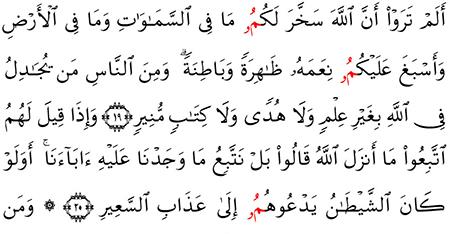 أَلَمْ تَرَوْا۟ أَنَّ ٱللَّهَ سَخَّرَ لَكُمُۥ مَا فِى ٱلسَّمَـٰوَٰتِ وَمَا فِى ٱلْأَرْضِ
وَأَسْبَغَ عَلَيْكُمُۥ نِعَمَهُۥ ظَـٰهِرَةً وَبَاطِنَةً ۗ وَمِنَ ٱلنَّاسِ مَن يُجَـٰدِلُ
فِى ٱللَّهِ بِغَيْرِ عِلْمٍ وَلَا هُدًى وَلَا كِتَـٰبٍ مُّنِيرٍ ﴿١٩﴾ وَإِذَا قِيلَ لَهُمُ
ٱتَّبِعُوا۟ مَا أَنزَلَ ٱللَّهُ قَالُوا۟ بَلْ نَتَّبِعُ مَا وَجَدْنَا عَلَيْهِ ءَابَآءَنَا ۚ أَوَلَوْ
كَانَ ٱلشَّيْطَـٰنُ يَدْعُوهُمُۥ إِلَىٰ عَذَابِ ٱلسَّعِيرِ ﴿٢٠﴾ ۞ وَمَن